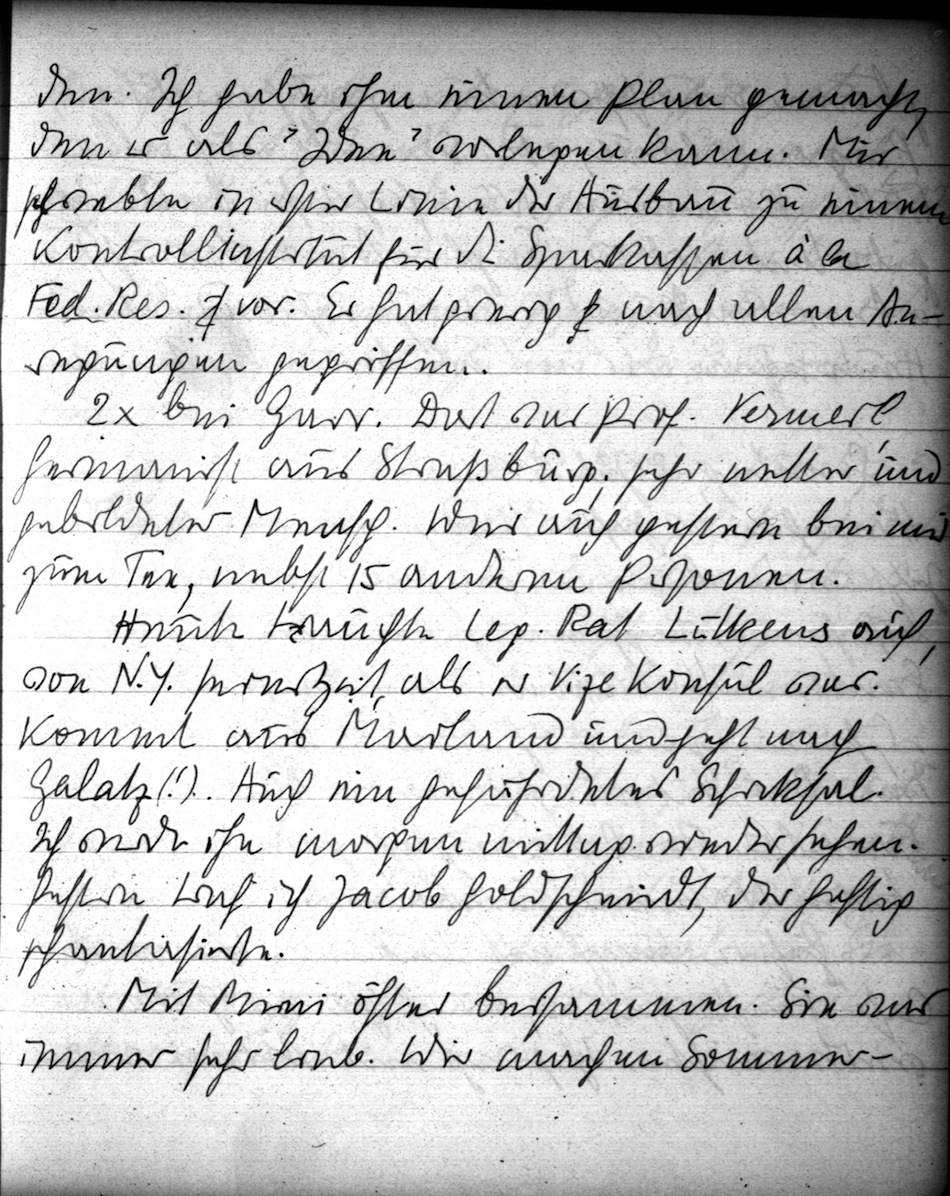 den. Ich habe ihm einen Plan gemacht,
den er als "Idee" vorlegen kann. Mir
schwebte in erster Linie der Ausbau zu einem
Kontrollinstitut für die Sparkassen à la
Fed. Res. vor. Er hat gierig nach allen An-
regungen gegriffen.
2x bei Dort war Prof. Vermeil
Germanist aus Straßburg, sehr netter und
gebildeter Mensch. War auch gestern bei mir
zum Tee, nebst 15 anderen Personen.
Heute tauchte Leg. Rat Lütkens auf,
von N.Y. seinerzeit, als er Vize Konsul war.
Kommt aus Mailand und geht nach
Galatz(!). Auch ein gefährdetes Schicksal.
Ich werde ihn morgen mittag wiedersehen.
Gestern traf ich Jacob Goldschmidt, der heftig
phantasierte.
Mit Mimi öfter beisammen. Sie war
immer sehr lieb. Wir machen Sommer-